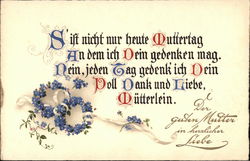 S'ist nicht nur heute Muttertag
An dem ich Dein gedenken mag.
Nein, jeden Tag gedenk ich Dein
Voll Dank und Liebe,
Mütterlein.
Der
guten Mutter
in herzlicher
Liebe